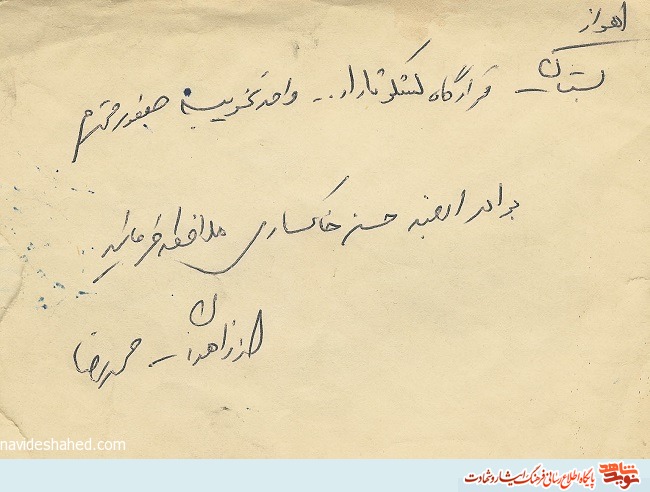 اهواز
بستان – قرارگاه لشگر ثارا... – واحد تخریب – حضور محترم
برادر حسن خاکساری ملاحظه فرمایند..
از زاهدان – حمیدرضا
navideshahed.com
نوید شاهد پایگاه اطلاع رسانی فرهنگ ایثار و شهادت